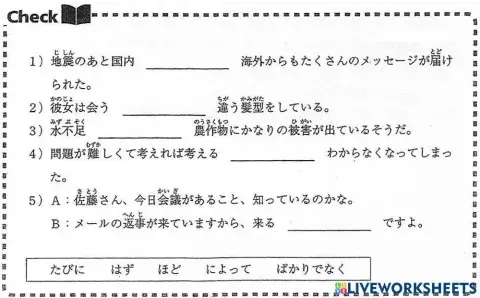 Check
1）地震のあと国内 ＿＿＿＿ 海外からもたくさんのメッセージが届け
られた。
2）彼女は会う ＿＿＿＿ 違う髪型をしている。
3）水不足 ＿＿＿＿ 農作物にかなりの被害が出ているそうだ。
4）問題が難しくて考えれば考える ＿＿＿＿ わからなくなってしまっ
た。
5）A：佐藤さん、今日会議があること、知っているのかな。
B：メールの返事が来ていますから、来る ＿＿＿＿ ですよ。
たびに はず ほど によって ばかりでなく
LIVEWORKSHEETS